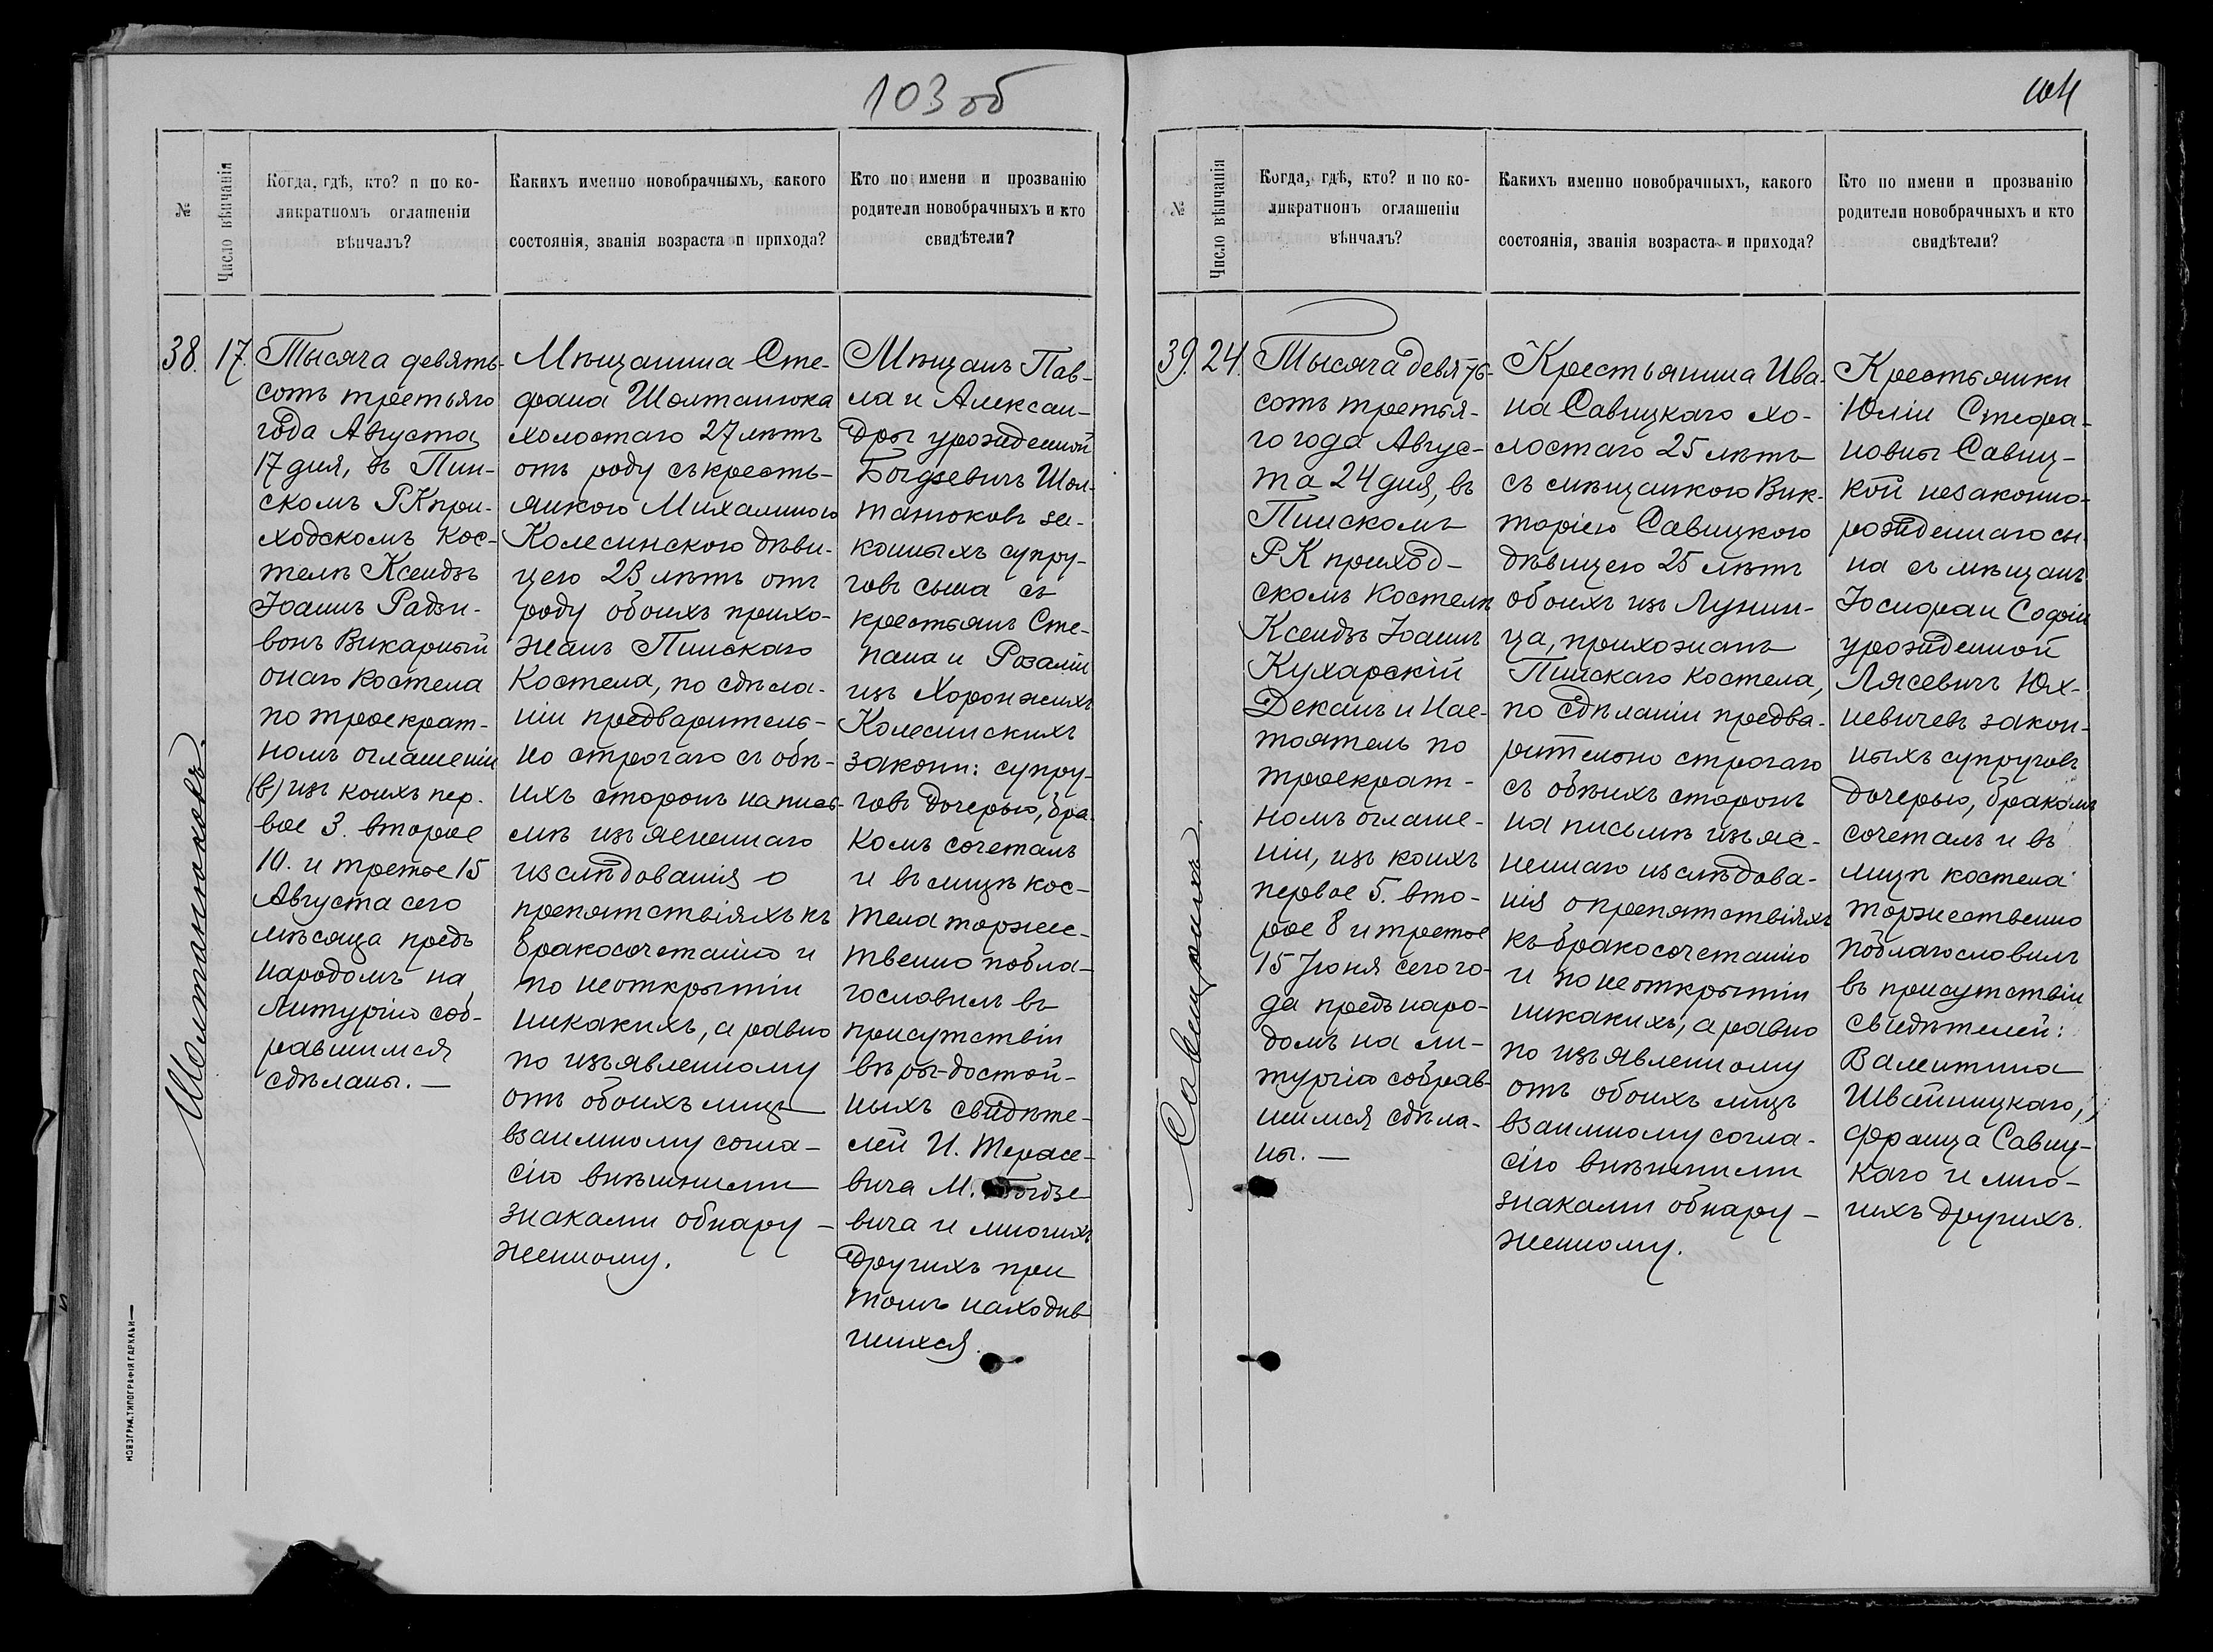 103 об
№
Число вѣнчанія
Когда, гдѣ, кто? и по ко-
ликратномъ оглашеніи
вѣнчалъ?
Каихъ именно новобрачныхъ, какого
состоянія, званія возраста и прихода?
Кто по имени и прозванію
родители новобрачныхъ и кто
свидѣтели?
Шолтанюковъ.
38.
17.
Тысяча девять-
сотъ третьяго
года Августа
17 дня, въ Пин-
скомъ РК при-
ходскомъ Кос-
телѣ Ксендзъ
Іоаннъ Радзи-
вонъ Викарный
онаго костела
по троекрат-
номъ оглашеніи
(в) изъ коихъ пер.
вое 3. второе
10. и третье 15
Августа сего
мѣсяца предъ
народомъ на
Литургію соб-
равшимся
сдѣланы. —
Мѣщанина Сте-
фана Шолтанюка
холостаго 27 лѣтъ
отъ роду съ кресть-
янкою Михалиною
Колесинскою дѣви-
цею 23 лѣтъ отъ
роду обоихъ прихо-
жанъ Пинскаго
Костела, по сдѣла-
ніи предваритель-
но строгаго съ обѣ-
ихъ сторонъ на пись-
мѣ изъясненнаго
изслѣдованія о
препятствіяхъ къ
бракосочетанію и
по неоткрытіи
никакихъ, а равно
по изъявленному
отъ обоихъ лицъ
взаимному согла-
сію внѣшними
знаками обнару-
женному.
Мѣщанъ Пав-
ла и Алексан-
дры урожденной
Богдзевичъ Шол-
танюковъ за-
конныхъ супру-
говъ сына съ
крестьянъ Сте-
пана и Розаліи
изъ Хоронжихъ
Колесинскихъ
законн: супру-
говъ дочерью, бра-
комъ сочеталъ
и въ лицѣ кос-
тела торже-
твенно побла-
гословилъ въ
присутствіи
вѣры-достой-
ныхъ свидѣте-
лей И. Терасе-
вича М. Богдзе-
вича и многихъ
другихъ при
томъ находив-
шихся.
НОВОГРУД. ТИПОГРАФІЯ ГАРКАВИ—
104
№
Число вѣнчанія
Когда, гдѣ, кто? и по ко-
ликратномъ оглашеніи
вѣнчалъ?
Какихъ именно новобрачныхъ, какого
состоянія, званія возраста и прихода?
Кто по имени и прозванію
родители новобрачныхъ и кто
свидѣтели?
39.
24.
Тысяча девять-
сотъ третья-
го года Авгус-
та 24 дня, въ
Пинскомъ
РК приход-
скомъ Костелѣ
Ксендзъ Іоаннъ
Кухарскій
Деканъ и Нас-
тоятель по
троекрат-
номъ оглаше-
ніи, изъ коихъ
первое 5. вто-
рое 8 и третье
15 Іюня сего го-
да предъ наро-
домъ на ли-
тургію собрав-
шимся сдѣла-
ны. —
Крестьянина Ива-
на Савицкаго хо-
лостаго 25 лѣтъ
съ мѣщанкою Вик-
торіею Савицкою
дѣвицею 25 лѣтъ
обоихъ изъ Лунин-
ца, прихожанъ
Пинскаго костела,
по сдѣланіи предва-
рительно строгаго
съ обѣихъ сторонъ
на письмѣ изъяс-
неннаго изслѣдова-
нія о препятствіяхъ
къ бракосочетанію
и по неоткрытіи
никакихъ, а равно
по изъявленному
отъ обоихъ лицъ
взаимному согла-
сію внѣшними
знаками обнару-
женному.
Крестьянки
Юліи Стефа-
новны Савиц-
кой незаконно-
рожденнаго сы-
на съ мѣщанъ
Іосифа и Софіи
урожденной
Лясевичъ Юх-
невичевъ закон-
ныхъ супруговъ
дочерью, бракомъ
сочеталъ и въ
лицѣ костела
торжественно
поблагословилъ
въ присутствіи
свидѣтелей:
Валентина
Швайницкаго,
Франца Савиц-
каго и мно-
гихъ другихъ.